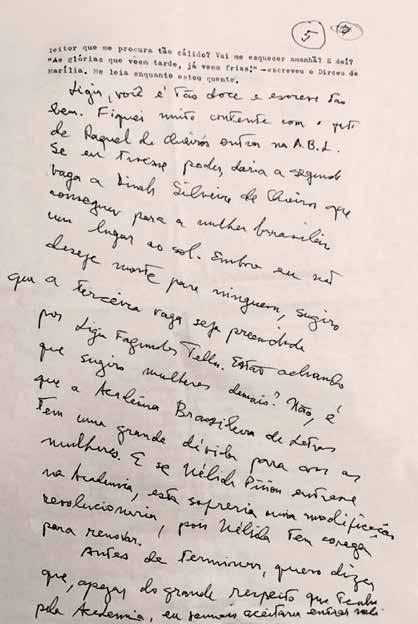 5
leitor que me procura tão cálido? Vai me esquecer amanhã? E daí?
"As glórias que vêem tarde, já veem frias!" —escreveu o Dirceu de
Marília. Me leia enquanto estou quente.
Ligia, você é tão doce e escreve tão
bem. Fiquei muito contente com o jeito
de Raquel de Queirós entrou na A.B.L.
Se eu tivesse poder, daria a segunda
vaga a Dinah Silveira de Queiroz que
conseguiu para a mulher brasileira
um lugar ao sol. Embora eu não
deseje morte para ninguém, sugiro
que a terceira vaga seja preenchida
por Ligia Fagundes Telles. Estão achando
que sugiro mulheres demais? Não, é
que a Academia Brasileira de Letras
tem uma grande dívida para com as
mulheres. E se Nélida Piñon entrasse
na Academia, esta sofreria uma modificação
revolucionária, pois Nélida tem coragem
para renovar.
Antes de terminar, quero dizer
que, apezar do grande respeito que tenho
pela Academia, eu jamais aceitaria entrar nela